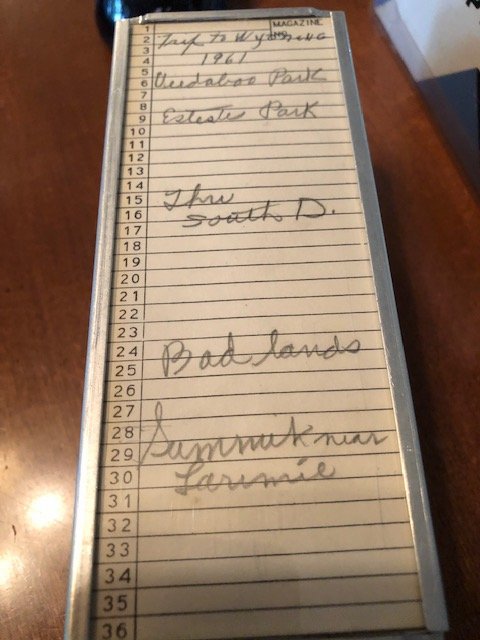 1 MAGAZINE
2 Trip to Wyoming NO.
3
4 1961
5
6 Veedaboo Park
7
8
9 Esteste Park
10
11
12
13
14
15 Thru
16 South D.
17
18
19
20
21
22
23
24 Bad lands
25
26
27
28
29 Summuit near
30 Larimie
31
32
33
34
35
36